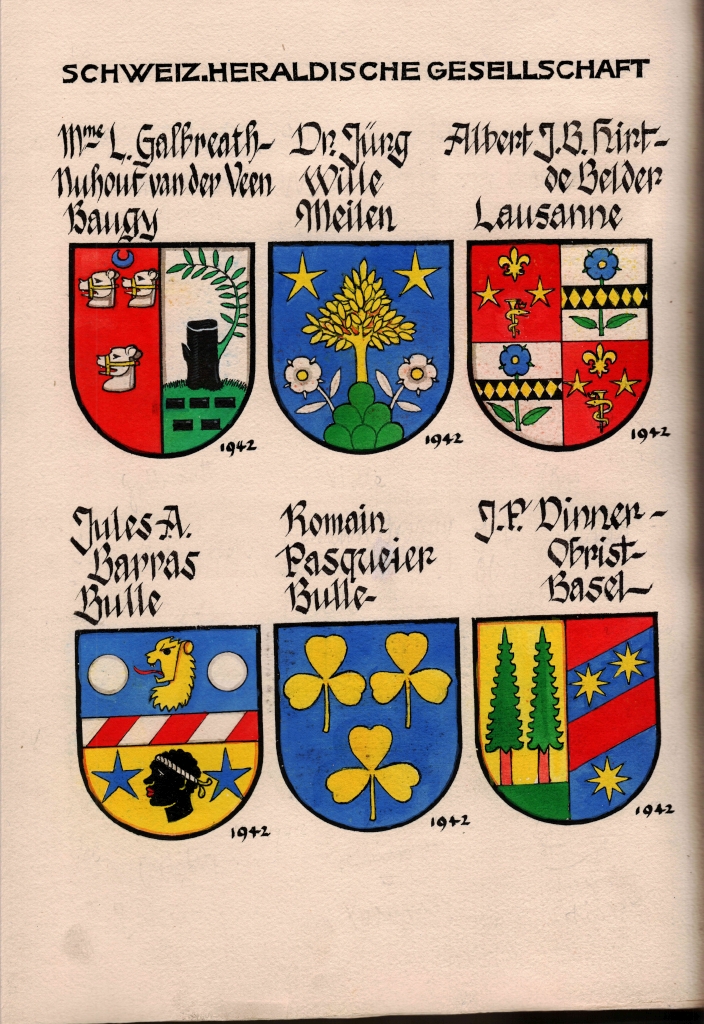 SCHWEIZ. HERALDISCHE GESELLSCHAFT
Mme L. Galbreath-
Nuhout van der Veen
Baugy
1942
Dr. Jürg
Wille
Meilen
1942
Albert J.B. Hirt-
de Belder
Lausanne
1942
Jules A.
Barras
Bulle
1942
Romain
Pasqueier
Bulle-
1942
J.P. Dinner-
Obrist-
Basel-
1942